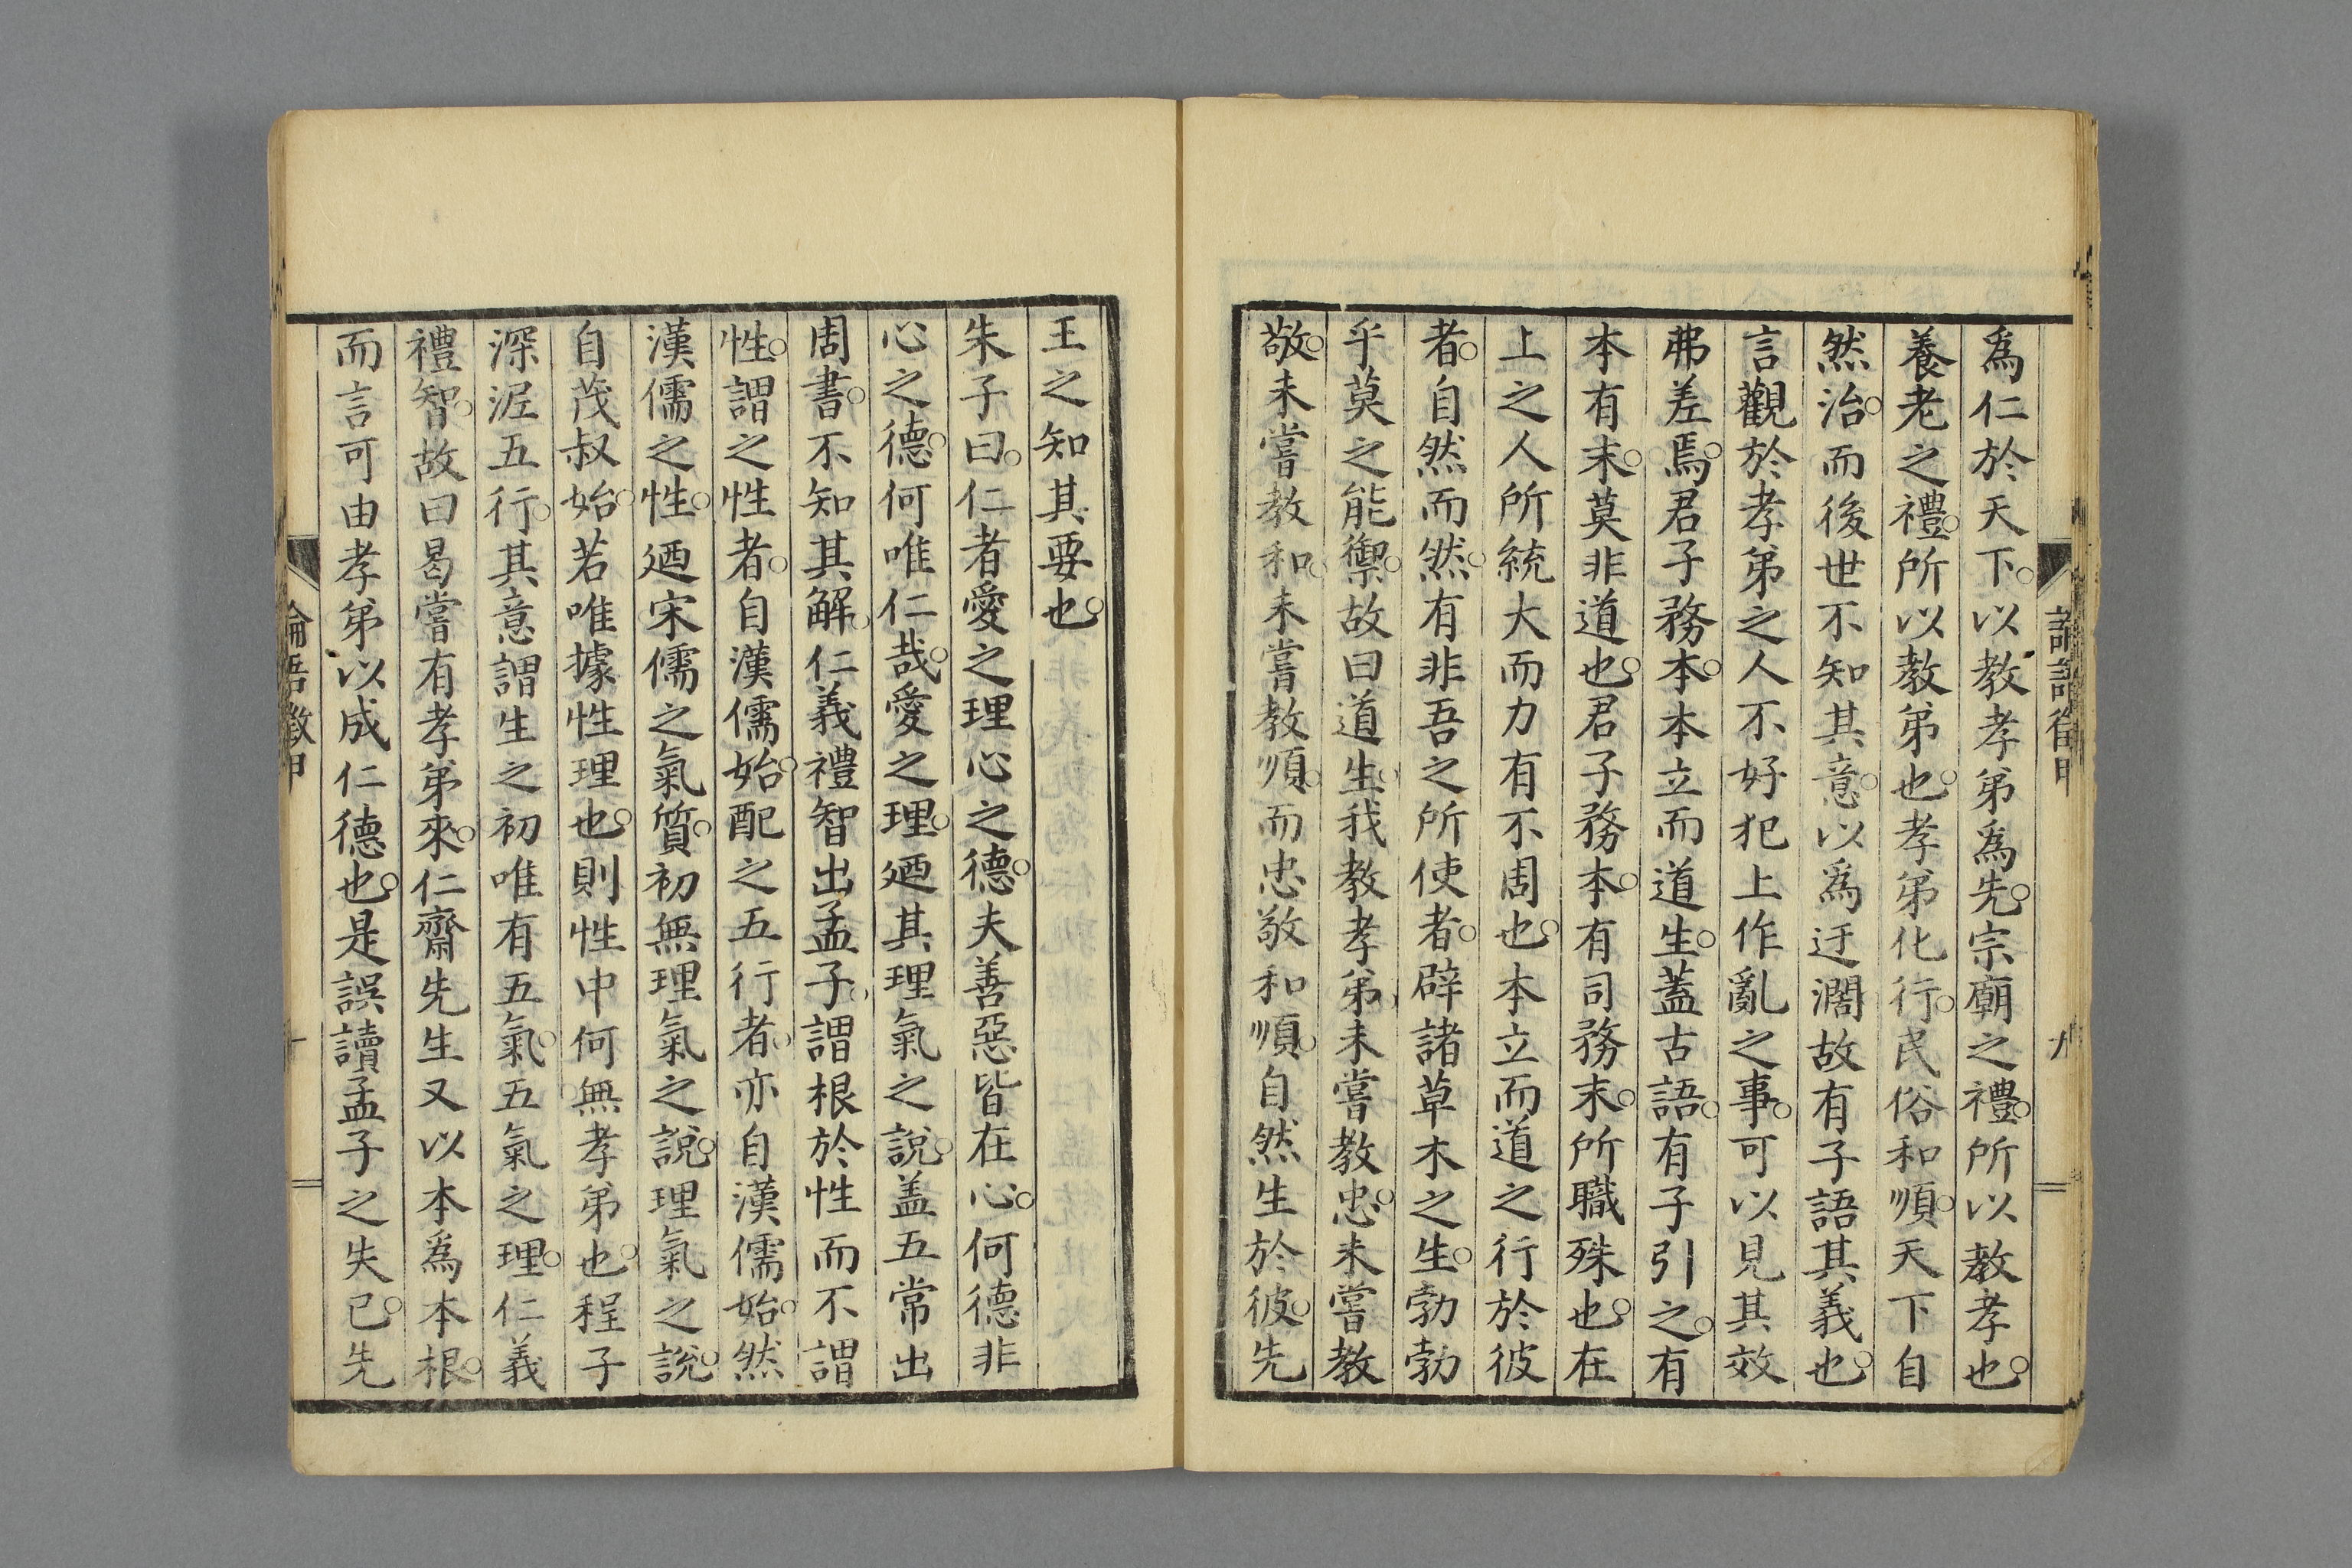 爲仁於天下。以教孝弟爲先。宗廟之禮。所以教孝也。
養老之禮。所以教弟也。孝弟化行。民俗和順。天下自
然治。而後世不知其意。以爲迂濶故有子語其義也。
言觀於孝弟之人不好犯上作亂之事。可以見其效
弗差焉。君子務本。本立而道生。蓋古語。有子引之。有
本有末。莫非道也。君子務本。有司務末。所職殊也。在
上之人所統大而力有不周也。本立而道之行於彼
者。自然而然。有非吾之所使者。辟諸草木之生。勃勃
乎莫之能禦。故曰道生。我教孝弟。未嘗教忠。未嘗教
敬。未嘗教和。未嘗教順。而忠敬和順。自然生於彼。先
王之知其要也。
朱子曰。仁者愛之理心之德。夫善惡皆在心。何德非
心之德。何唯仁哉。愛之理。廼其理氣之說。盖五常出
周書。不知其解。仁義禮智出孟子。謂根於性而不謂
性。謂之性者。自漢儒始。配之五行者。亦自漢儒始。然
漢儒之性。廼宋儒之氣質。初無理氣之說。理氣之說。
自茂叔始。若唯據性理也。則性中何無孝弟也。程子
深泥五行。其意謂生之初唯有五氣。五氣之理。仁義
禮智。故曰曷嘗有孝弟來。仁齋先生又以本爲本根。
而言可由孝弟以成仁德也。是誤讀孟子之失已。先
論語徵甲
九
論語徵甲
十